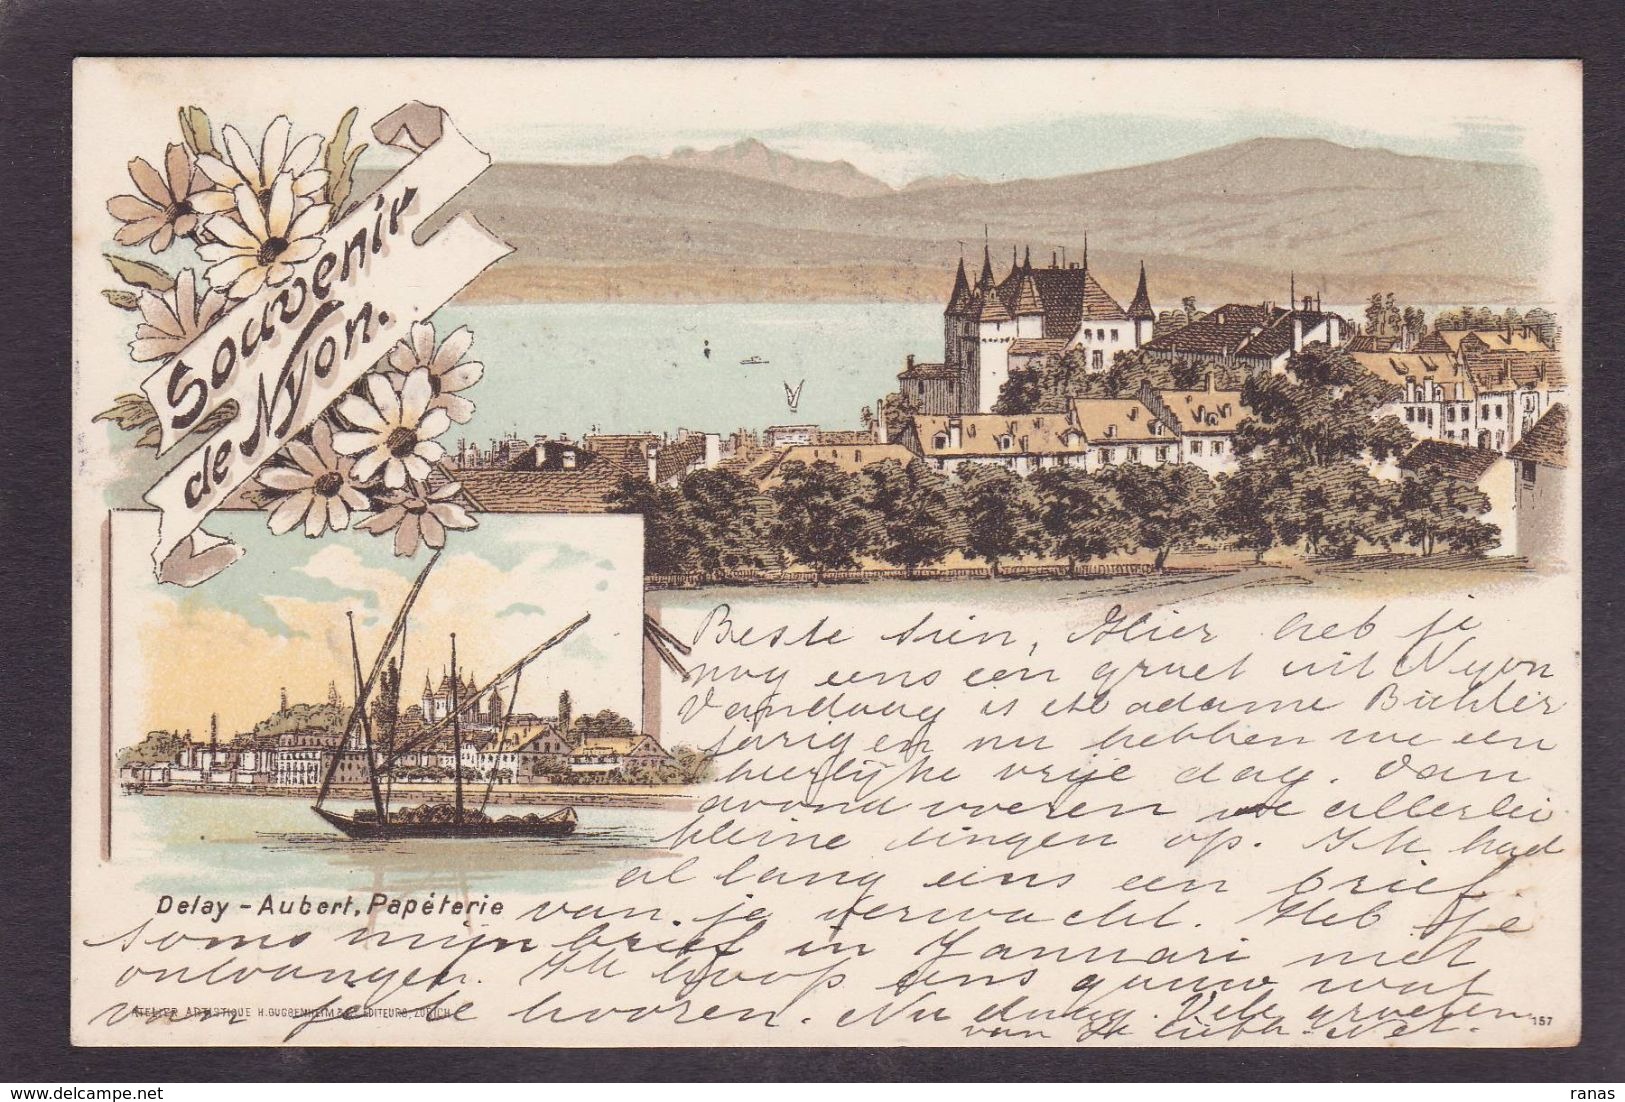 Souvenir
de Nyon.
Beste Sien, Hier heb je
nog eens een groet uit Nyon
Vandaag is Madame Bichler
jarig en nu hebben we een
heerlijke vrije dag. Van
avond voeren we allerlei
kleine dingen op. Ik had
al lang eens een brief
Delay - Aubert, Papéterie
van je verwacht. Heb je
soms mijn brief in Januari niet
ontvangen. Ik hoop eens gauw wat
van je te hooren. Nu daag. Vele groeten
van je liefh.
ATELIER ARTISTIQUE H. GUGGENHEIM & Cº, EDITEURS, ZURICH
157
delcampe.net
ranas